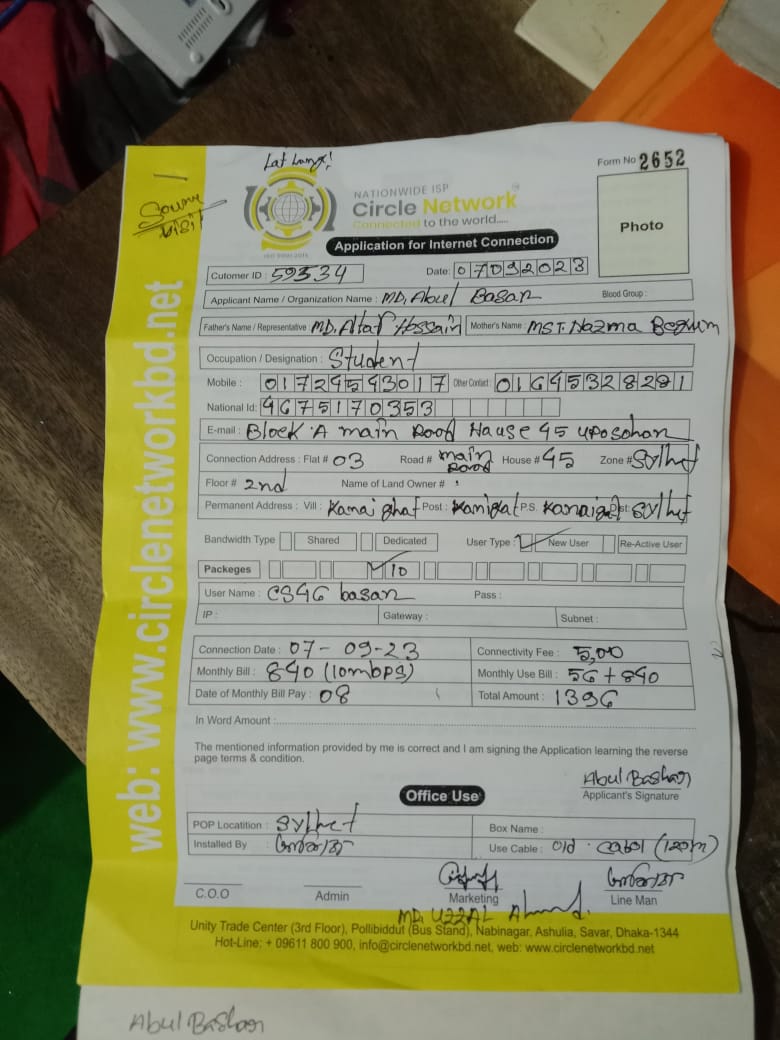 Lat Long!
Form No 2652
NATIONWIDE ISP
Circle Network
Connected to the world.....
ISO 9001:2015
Photo
Application for Internet Connection
Cutomer ID : 59534 Date: 07092023
Applicant Name / Organization Name : MD, Abul Basan Blood Group :
Father's Name / Representative : MD, Altaf Hossain Mother's Name : MST. Nazma Begum
Occupation / Designation : Student
Mobile : 01724543017 Other Contact : 01645328281
National Id: 4675170353
E-mail : Block A main Rood Hause 45 uposohan
Connection Address : Flat # 03 Road # main Rood House # 45 Zone # Sylhet
Floor # 2nd Name of Land Owner #
Permanent Address : Vill : Kanaighat Post : Kanigat P.S. Sylhet
Bandwidth Type Shared Dedicated User Type : ✓ New User Re-Active User
Packeges ✓ 10
User Name : CS4G basan Pass :
IP : Gateway : Subnet :
Connection Date : 07-09-23 Connectivity Fee : 5,00
Monthly Bill : 840 (10mbps) Monthly Use Bill : 56 + 840
Date of Monthly Bill Pay : 08 Total Amount : 1396
In Word Amount :
The mentioned information provided by me is correct and I am signing the Application learning the reverse
page terms & condition.
Abul Bashar
Applicant's Signature
Office Use
POP Locatition : Sylhet Box Name :
Installed By : Use Cable : Old . Cabol (120m)
C.O.O Admin Marketing Line Man
MD. UZZAL Ahmed.
Unity Trade Center (3rd Floor), Pollibiddut (Bus Stand), Nabinagar, Ashulia, Savar, Dhaka-1344
Hot-Line: + 09611 800 900, info@circlenetworkbd.net, web: www.circlenetworkbd.net
web: www.circlenetworkbd.net
Abul Bashar